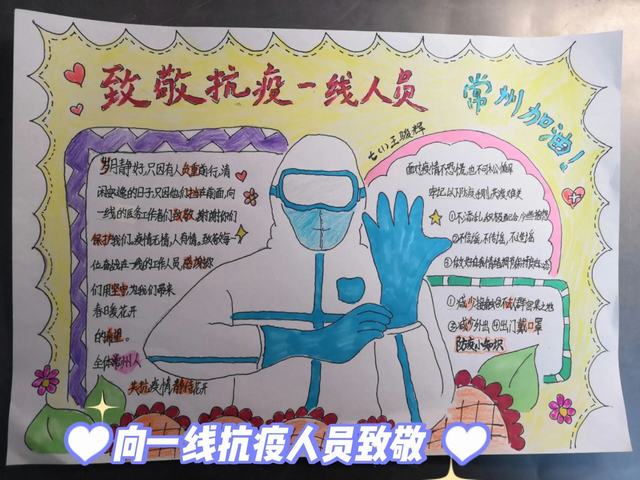 致敬抗疫一线人员
常州加油！
七(1)王骏辉
岁月静好,只因有人负重前行,清
闲安逸的日子,只因他们挡在前面,向
一线的医务工作者们致敬,谢谢你们
保护我们。疫情无情,人有情。致敬每一
位奋战在一线的工作人员,感谢您
们用坚守为我们带来
春日暖花开
的希望。
全体常州人
共抗疫情静待花开
面对疫情不恐慌,也不可松懈
牢记以下防疫
①不添乱,积极配合
②不信谣,不传谣,不造谣
③
①减少接触
③减少外出④出门戴口罩
防疫小知识
向一线抗疫人员致敬